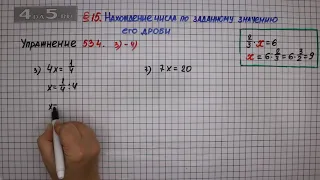 4 ПО 5 ИМ
§ 15. Нахождение числа по заданному значению
его дроби
Упражнение 534. 3) - 4)
2/3 · x = 6
x = 6 : 2/3 = 6 · 3/2 = 9
3) 4x = 1/4
x = 1/4 : 4
x
7) 7x = 20